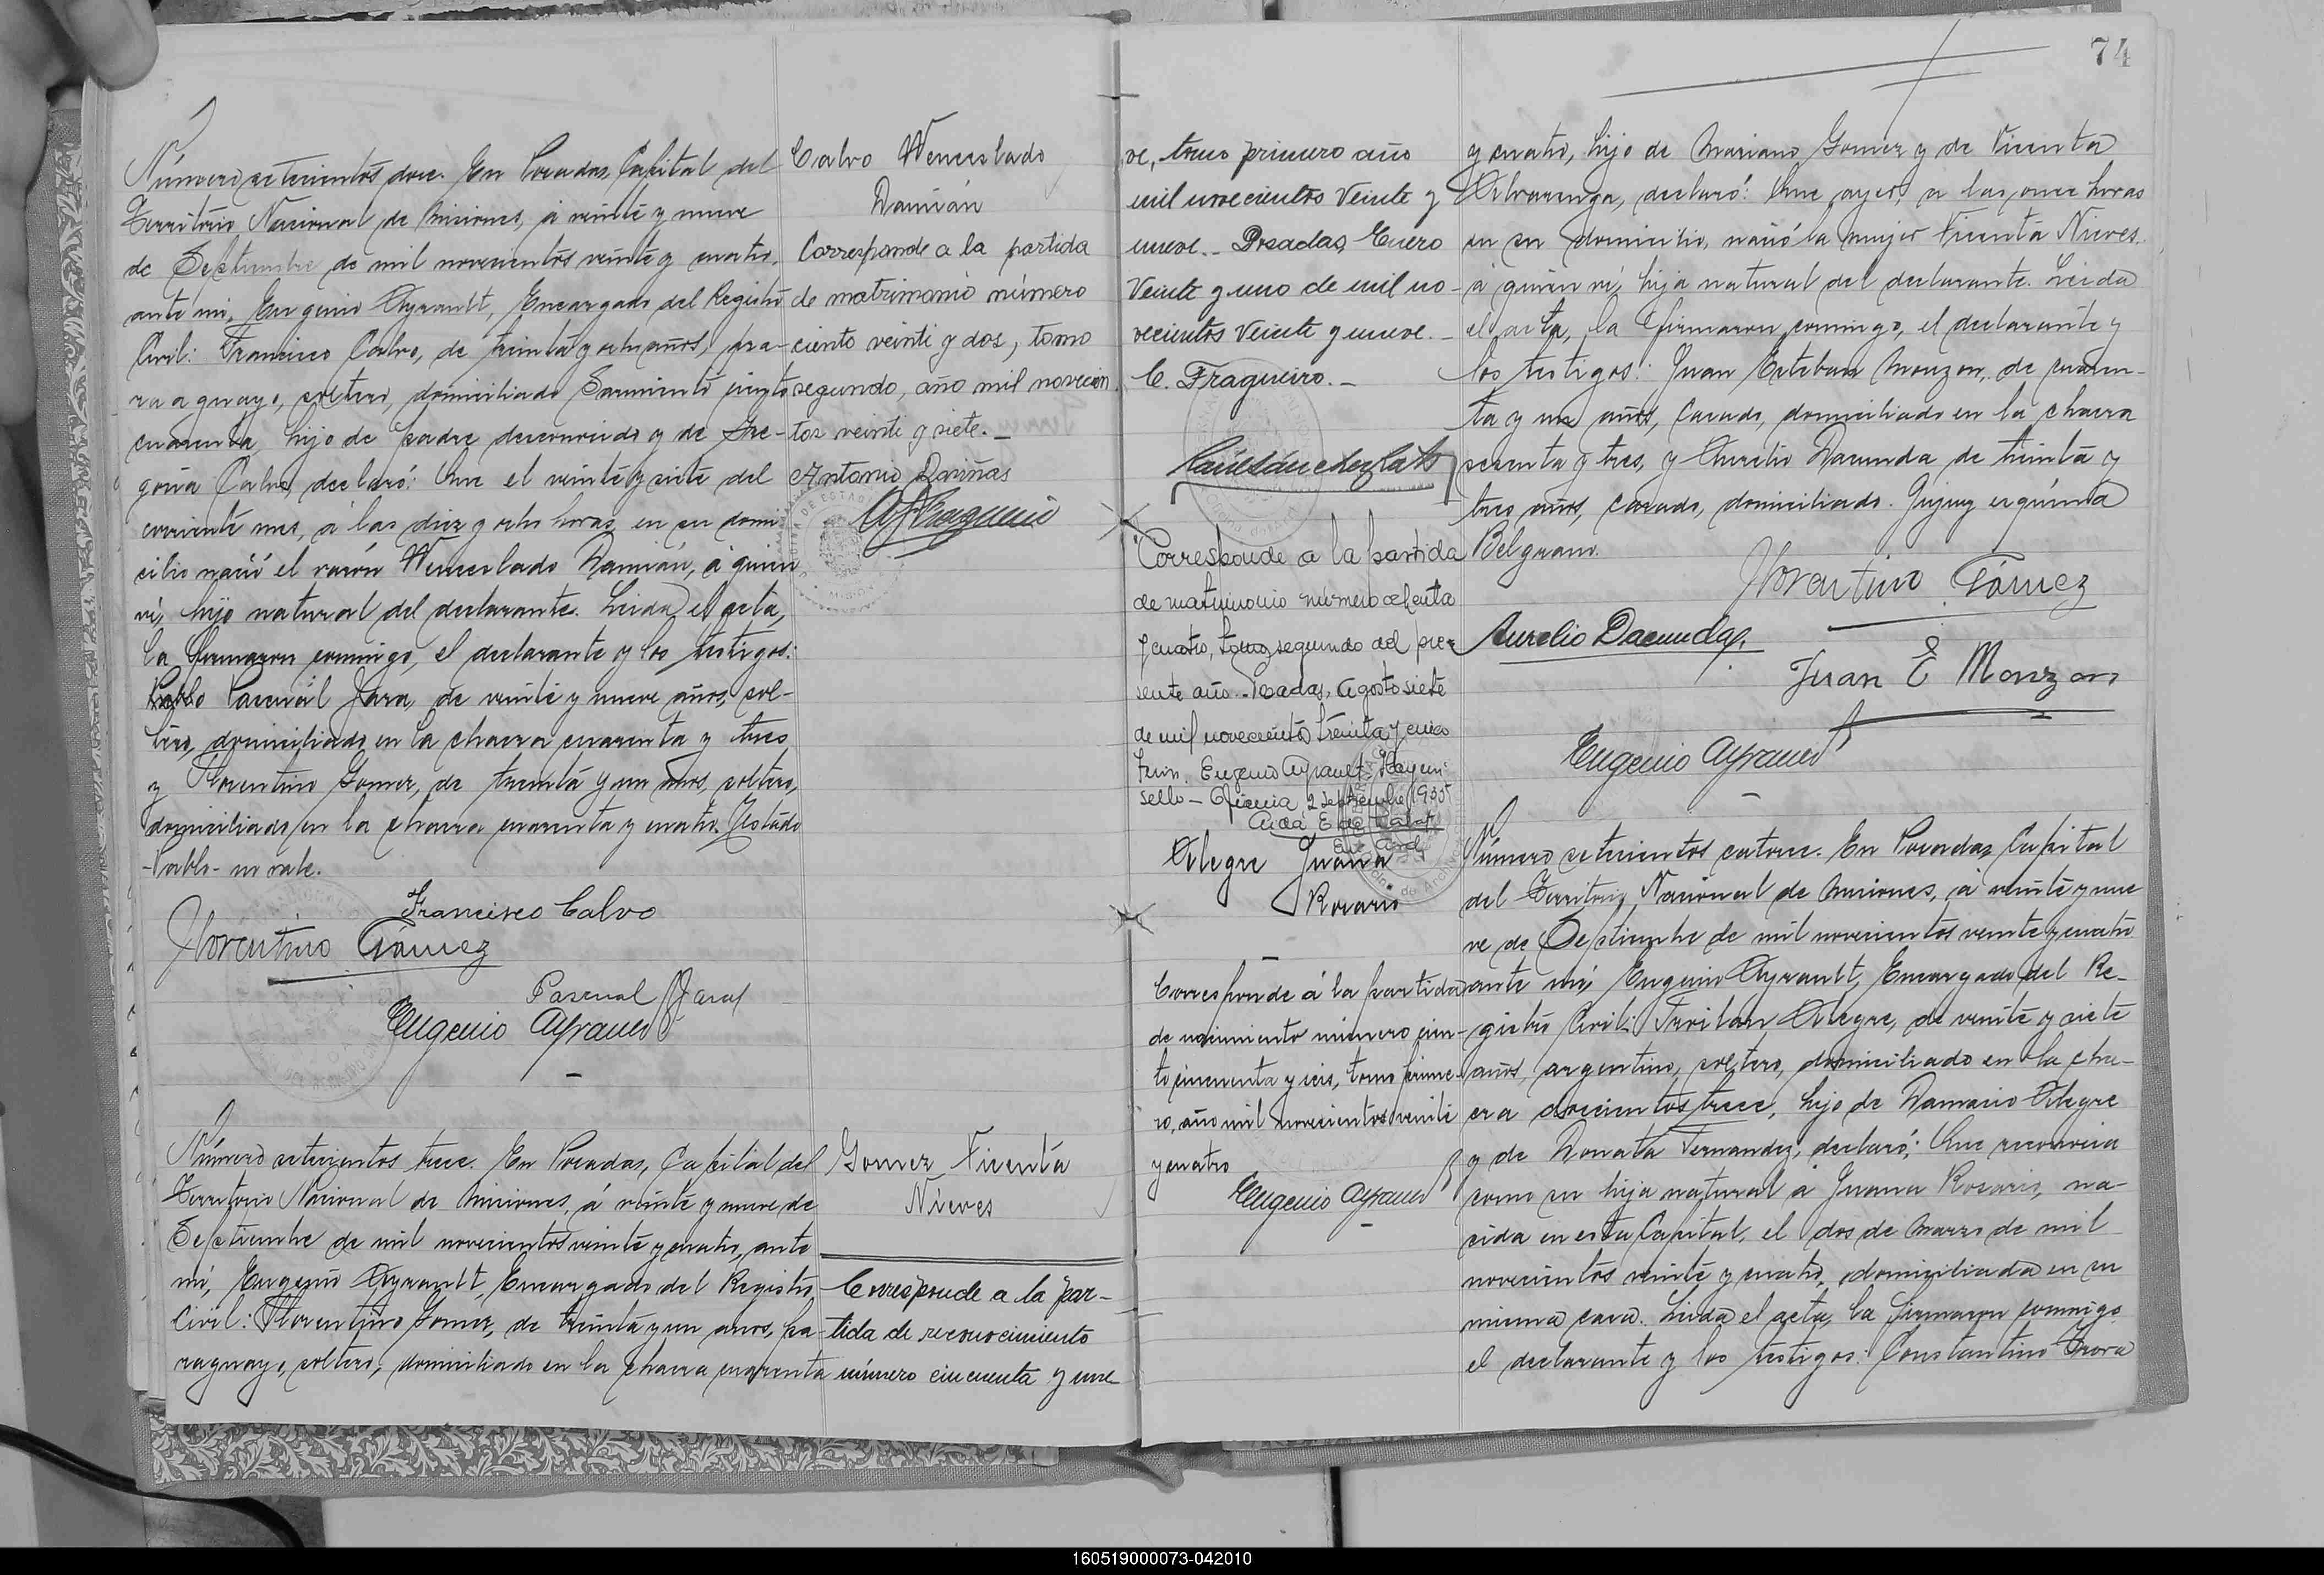 Número setecientos doce. En Posadas, Capital del
Territorio Nacional de Misiones, á veinte y nueve
de Septiembre de mil novecientos veinte y cuatro,
ante mi, Eugenio Ayrault, Encargado del Registro
Civil: Francisco Calvo, de treinta y ocho años, pa-
raguayo, soltero, domiciliado Sarmiento ciento
cuarenta, hijo de padre desconocido y de Gre-
goria Calvo, declaró: Que el veinte y siete del
corriente mes, á las diez y ocho horas, en su domi
cilio nació el varón Wenceslado Damián, á quien
ví, hijo natural del declarante. Leida el acta,
la firmaron conmigo, el declarante y los testigos:
Pablo Pascual Jara, de veinte y nueve años, sol-
tero, domiciliado en la chacra cuarenta y tres,
y Florentino Gomez, de treinta y un años, soltero,
domiciliado en la chacra cuarenta y cuatro. Testado
-Pablo- no vale.
Francisco Calvo
Florentino Gómez
Pascual Jara
Eugenio Ayrault
Calvo Wenceslado
Damián
Corresponde a la partida
de matrimonio número
ciento veinti y dos, tomo
segundo, año mil novecien
tos veinti y siete._
Antonio Dariñas
Número setecientos trece. En Posadas, Capital del
Territorio Nacional de Misiones, á veinte y nueve de
Septiembre de mil novecientos veinte y cuatro, ante
mí, Eugenio Ayrault, Encargado del Registro
Civil: Florentino Gomez, de treinta y un años, pa-
raguayo, soltero, domiciliado en la chacra cuarenta
Gomez Vicenta
Nieves
Corresponde a la par-
tida de reconocimiento
número cincuenta y nue
74
ve, tomo primero año
mil novecientos Veinte y
nueve.- Posadas, Enero
Veinte y uno de mil no-
vecientos Veinte y nueve._
C. Fragueiro._
Corresponde a la partida
de matrimonio número ochenta
y cuatro, tomo segundo del pre-
sente año. Posadas, Agosto siete
de mil novecientos treinta y cinco
Eugenio Ayrault. Hay un
sello - Oficina 2 Septiembre 1935
y cuatro, hijo de Mariano Gomez y de Vicenta
Alvarenga, declaró: Que ayer, a las once horas
en su domicilio, nació la mujer Vicenta Nieves,
á quien ví, hija natural del declarante. Leida
el acta, la firmaron conmigo, el declarante y
los testigos: Juan Esteban Monzon, de cuaren-
ta y un años, casado, domiciliado en la chacra
sesenta y tres, y Aurelio Dacunda de treinta y
tres años, casado, domiciliado Jujuy esquina
Belgrano.
Florentino Gómez
Aurelio Dacunda
Juan E Monzon
Eugenio Ayrault
Alegre Juana
Rosario
Corresponde á la partida
de nacimiento número cien-
to cincuenta y seis, tomo prime-
ro, año mil novecientos veinte
y cuatro
Eugenio Ayrault
Número setecientos catorce. En Posadas, Capital
del Territorio Nacional de Misiones, á veinte y nue
ve de Septiembre de mil novecientos veinte y cuatro
ante mí, Eugenio Ayrault, Encargado del Re-
gistro Civil: Alegre, de veinte y siete
años, argentino, soltero, domiciliado en la cha-
cra doscientos trece, hijo de Damasio Alegre
y de Donata Fernandez, declaró: Que reconocia
como su hija natural á Juana Rosario, na-
cida en esta Capital, el dos de Marzo de mil
novecientos veinte y cuatro, domiciliada en su
misma casa. Leida el acta, la firmaron conmigo
el declarante y los testigos: Constantino
160519000073-042010